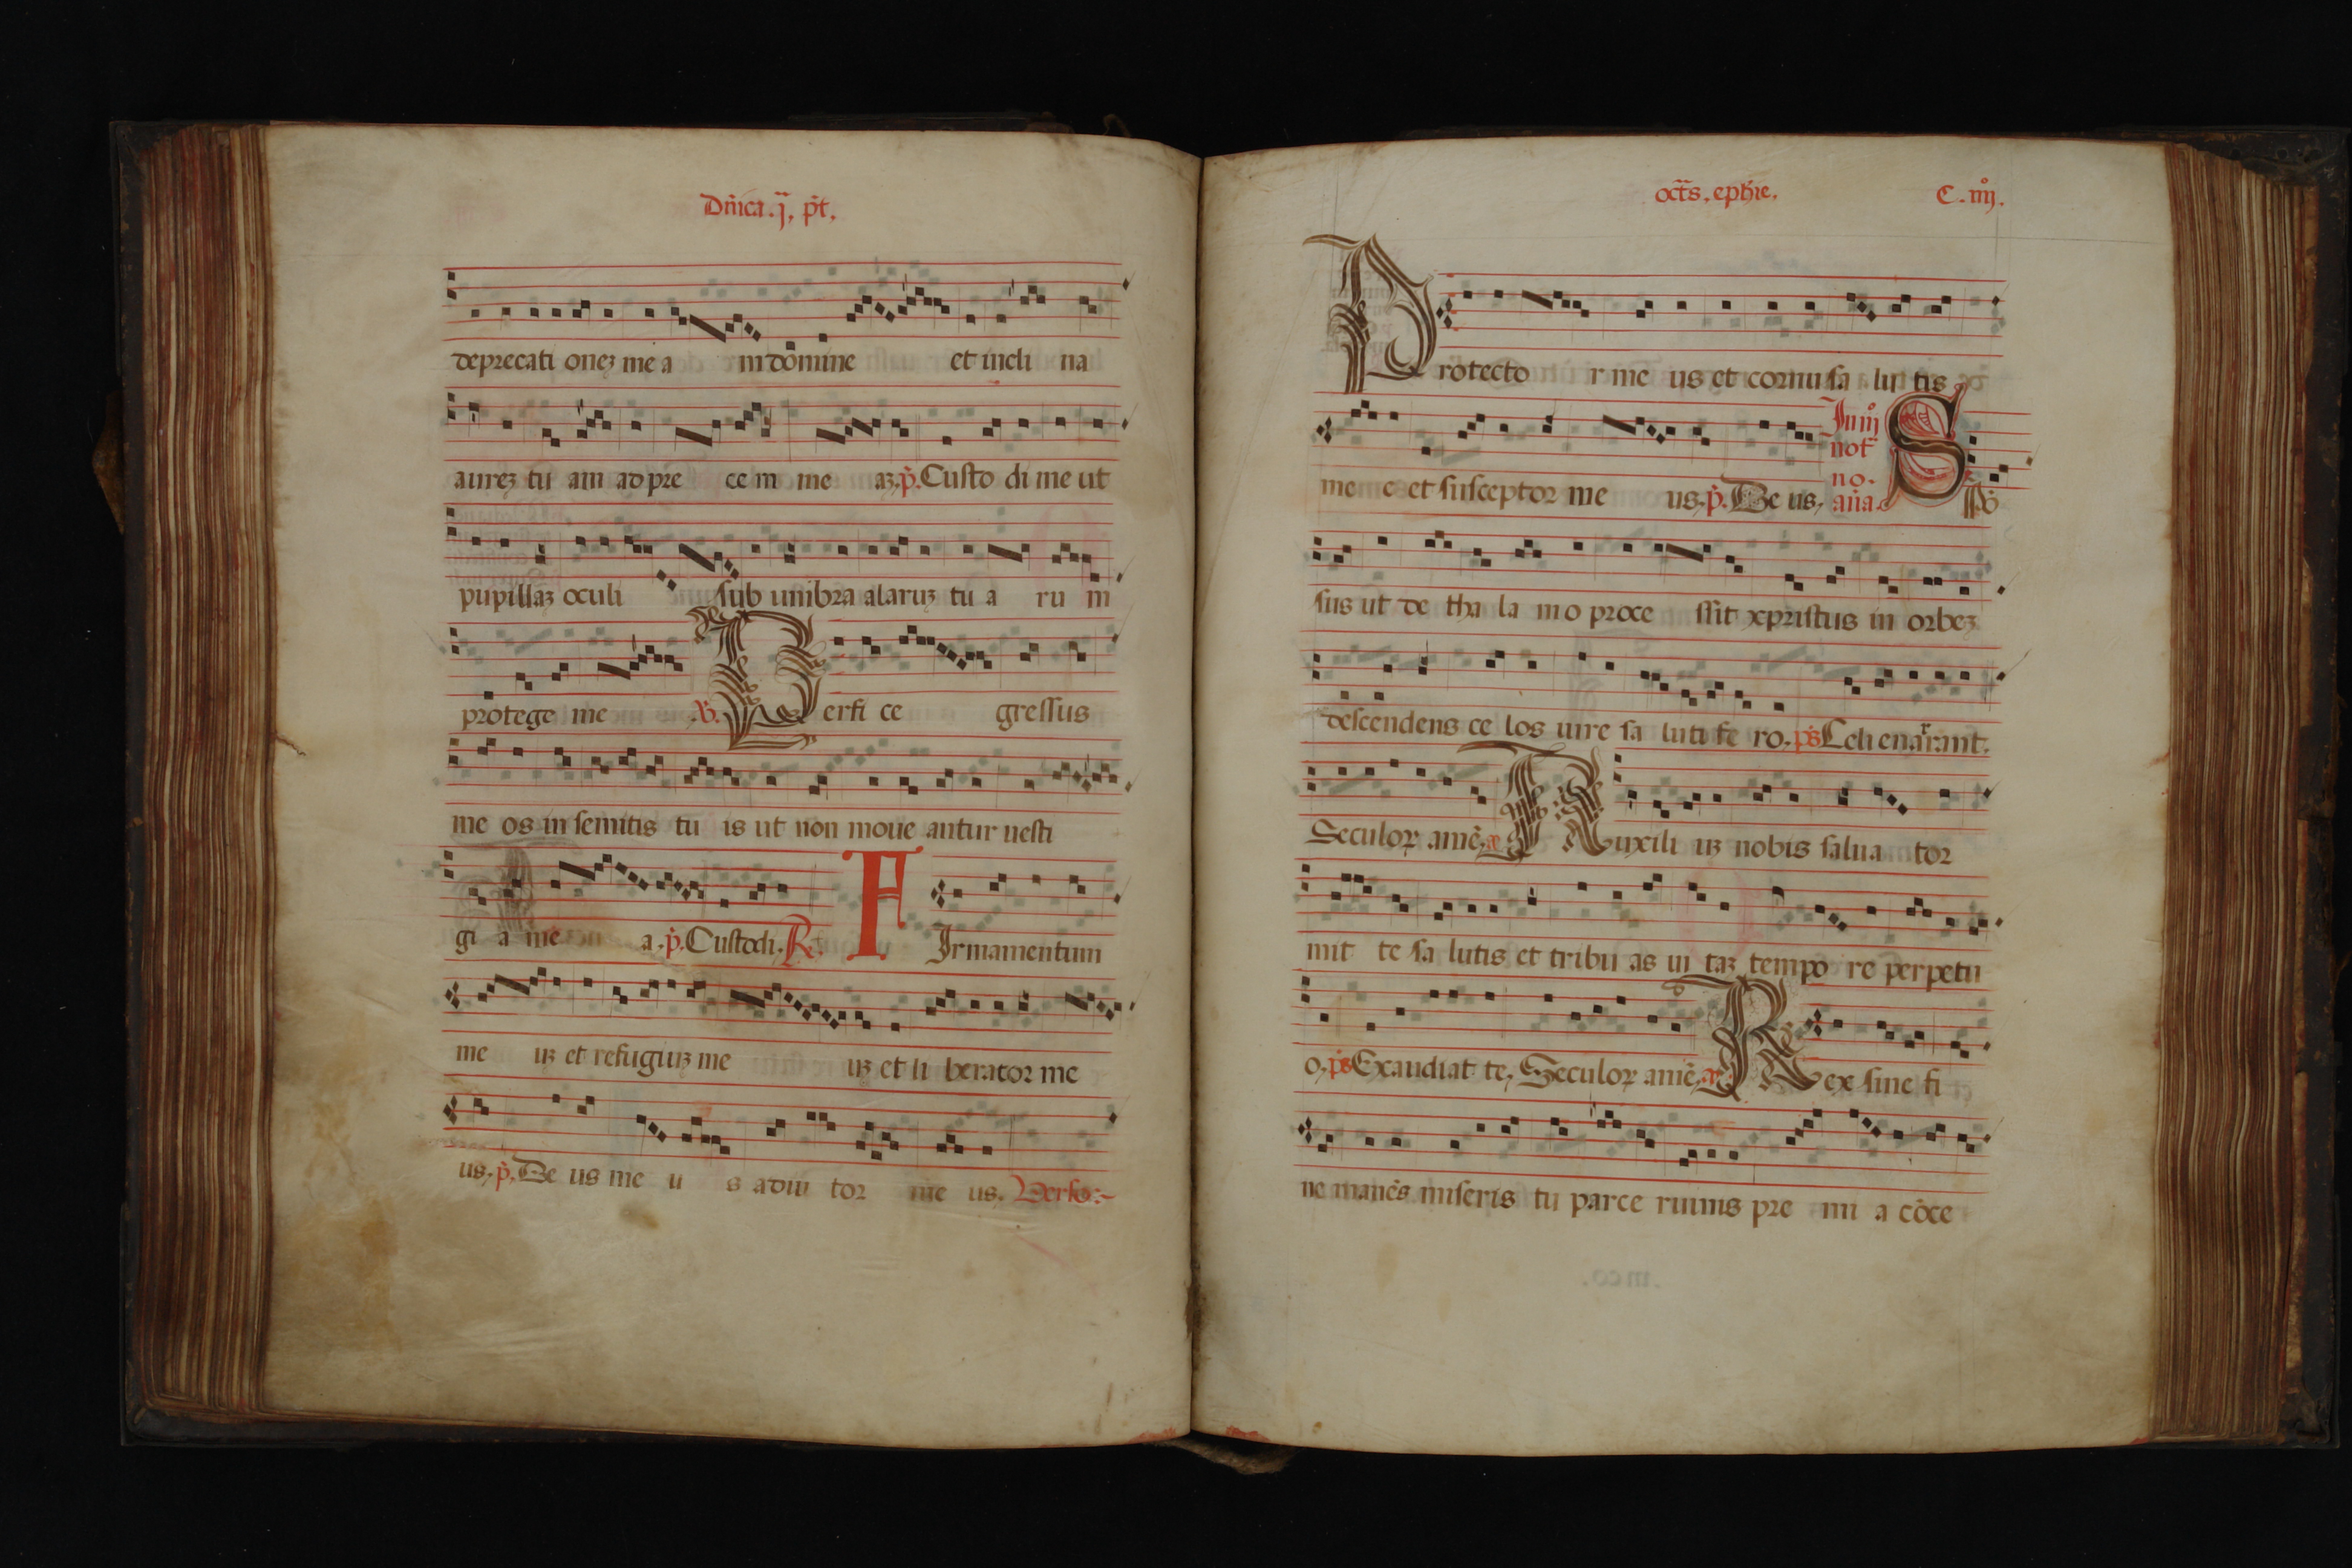 Dñica .ij. p̃t.
deprecati onez me a m domine et incli na
aurez tu am ad pre ce m me az. p̃. Custo di me ut
pupillaz oculi sub umbra alaruz tu a ru m
protege me ℣. Perfi ce gressus
me os in semitis tu is ut non moue antur uesti
gi a me a. p̃. Custodi. R̃. FIrmamentum
me uz et refugiuz me uz et li berator me
us. p̃. De us me u s adiu tor me us. Verso:-
oct̃s. ephie. C. iiij.
Protecto r me us et cornu sa lu tis
me e et susceptor me us. p̃. De us. In iij not̃ no. an̄a. Spõ
sus ut de tha la mo proce ssit xpristus in orbez
descendens ce los iure sa luti fe ro. ps̃ Celi enarrant.
Seculoꝝ amẽ. a Auxili uz nobis salua tor
mit te sa lutis et tribu as ui taz tempo re perpetu
o. ps̃ Exaudiat te. Seculoꝝ amẽ. a Rex sine fi
ne manẽs miseris tu parce ruinis pre mi a cõce